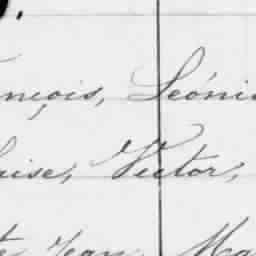 nçois, Léoni
uise, Victor,
Jean Ma